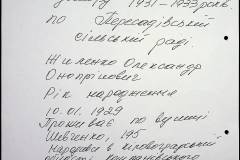 1931-1933 років.
по Пересадівській
сільській раді.
Жиленко Олександр
Онопрійович
Рік народження
10.01.1929
Проживає по вулиці
Шевченко, 195
Народився в Кіровоградській
області